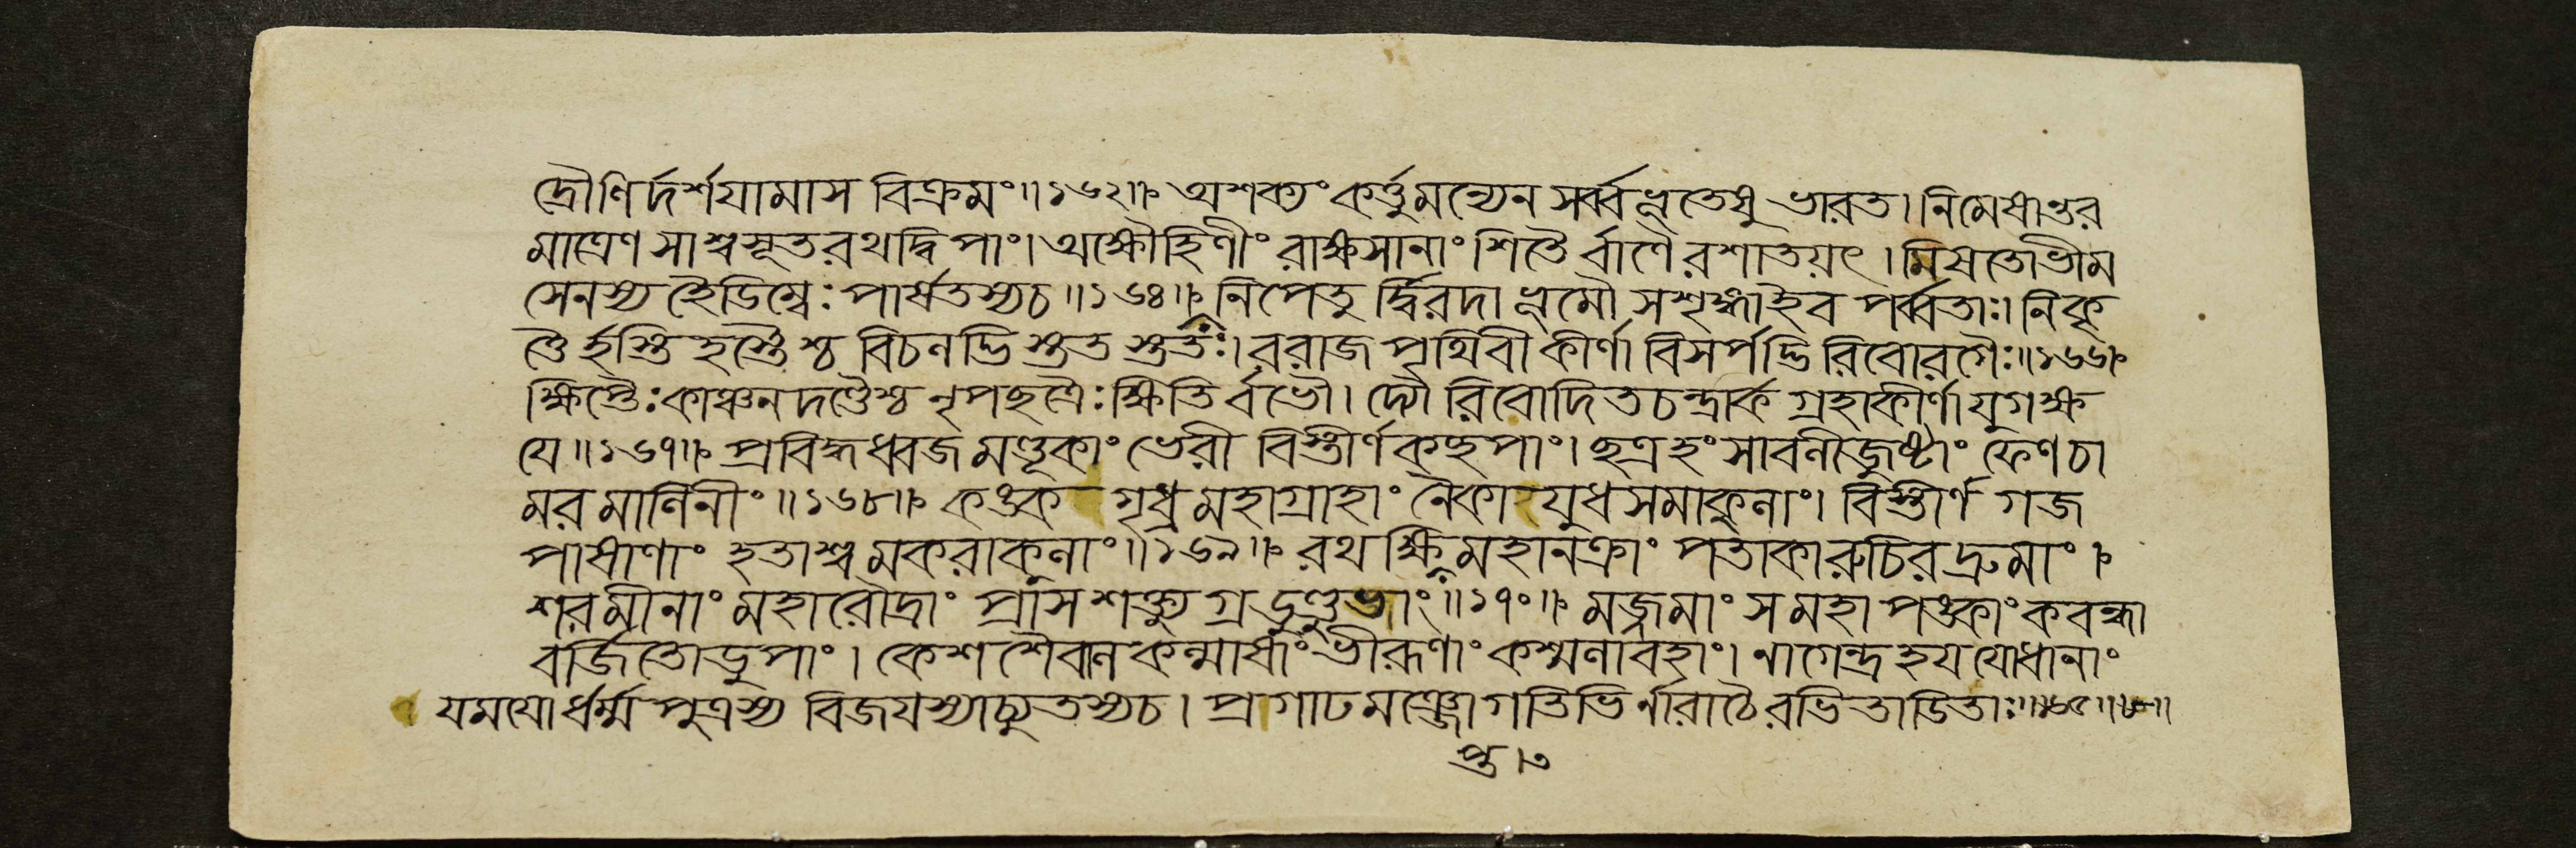 দ্রৌণির্দর্শযামাস বিক্রমং॥১৬২॥ অশক্যং কর্ত্তুমন্যেন সর্ব্বভূতেষু ভারত। নিমেষান্তর
মাত্রেণ সাশ্বসূতরথদ্বিপাং। অক্ষৌহিণীং রাক্ষসানাং শিতৈর্বাণৈরশাতয়ৎ। মিষতোভীম
সেনস্য হৈডিম্বেঃ পার্ষতস্যচ॥১৬৪॥ নিপেতুর্দ্বিরদা ভূমৌ সশৃঙ্গাইব পর্ব্বতাঃ। নিকৃ
ত্তৈর্হস্তিহস্তৈশ্চ বিচলদ্ভিস্তত স্ততঃ। ররাজ পৃথিবী কীর্ণা বিসর্পদ্ভিরিবোরগৈঃ॥১৬৬॥
ক্ষিপ্তৈঃ কাঞ্চনদণ্ডৈশ্চ নৃপছত্রৈঃ ক্ষিতির্বভৌ। দ্যৌরিবোদিতচন্দ্রার্ক গ্রহাকীর্ণা যুগক্ষ
যে॥১৬৭॥ প্রবিদ্ধধ্বজমণ্ডূকাং ভেরী বিস্তীর্ণকছপাং। ছত্রহংসাবলীজুষ্টাং ফেণচা
মরমালিনীং॥১৬৮॥ কঙ্ক গৃধ্রমহাগ্রাহাং নৈকাযুধসমাকুলাং। বিস্তীর্ণ গজ
পাষাণাং হতাশ্বমকরাকুলাং॥১৬৯॥ রথক্ষিপ্তমহানক্রাং পতাকারুচিরদ্রুমাং।
শরমীনাং মহারৌদ্রাং প্রাসশক্ত্যুগ্রডুণ্ডুভাং॥১৭০॥ মজ্জমাংসমহাপঙ্কাং কবন্ধা
বর্জিতোডুপাং। কেশশৈবালকল্মাষাং ভীরূণাং কশ্মলাবহাং। নাগেন্দ্রহযযোধানাং
যমযোর্ধর্ম্মপুত্রস্য বিজযস্যাচ্যুতস্যচ। প্রগাঢমঞ্জোগতিভির্নারাচৈরভিতাডিতাঃ॥